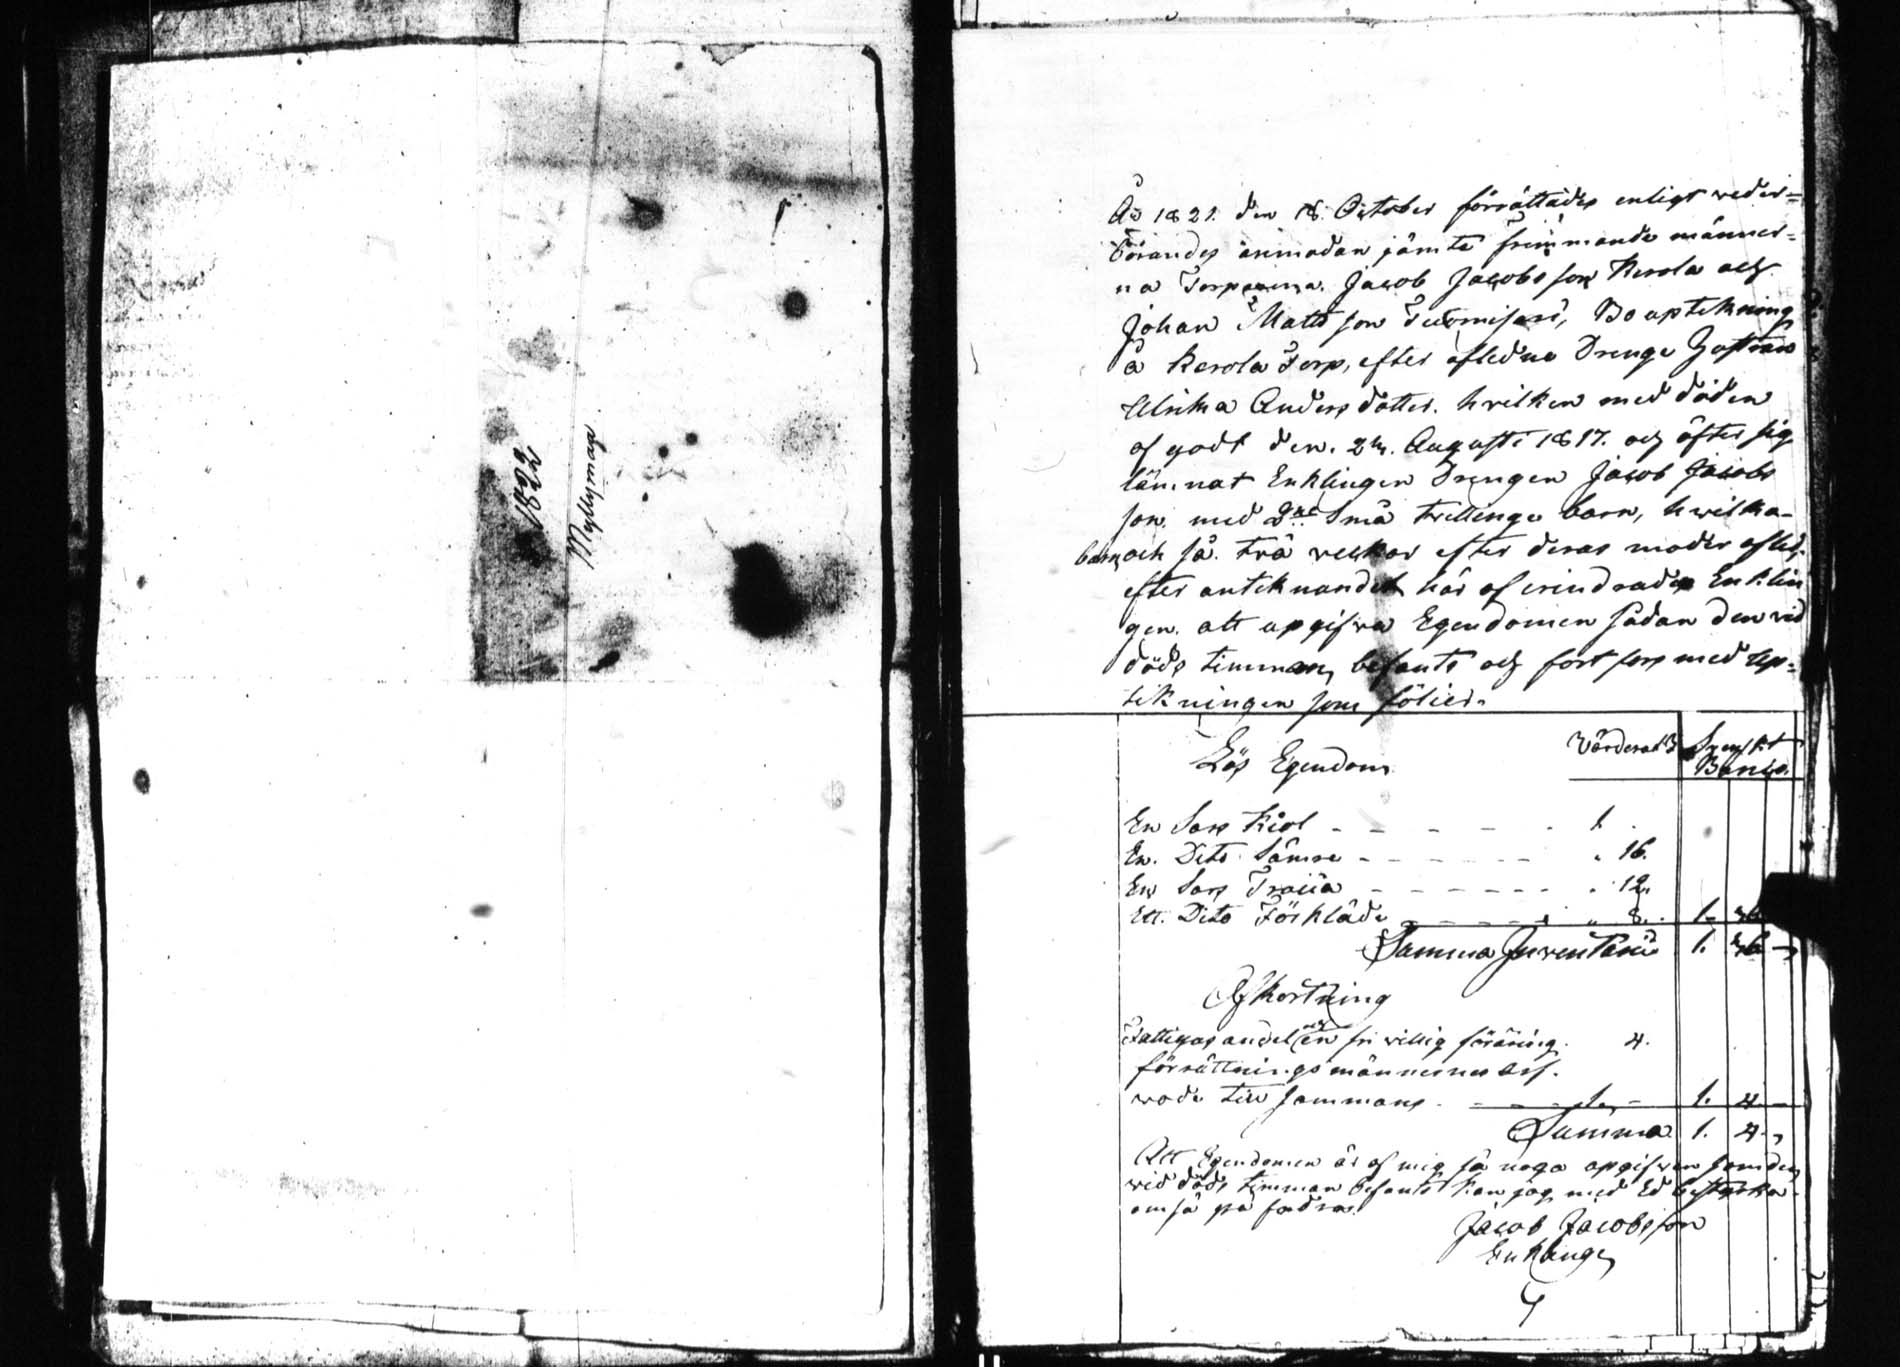 1822
Myllymaa
Åo 1821. den 18. October förrättades enligt weder=
börandes anmodan jämte främmande männer=
na Torparena. Jacob Jacobsson Kerola och
Johan Mattsson Tuomisari, Bo uptekning
å Kerola Torp, efter afledne Drenge Hustrun
Ulrika Andersdotter. hvilken med döden
af godt den. 24. Augusti 1817. och äfter sig
lämnat Enklingen Drengen Jacob Jacobs
son. med 2ne Små twillinge barn, hwilka-
barn och så. två veckor efter deras moder afled.
efter anteknandet här af erindrades Enklin
gen. att upgifva Egendomen sådan den vid
döds timman befants och fortfors med up=
tekningen som följer.
Lös Egendom Värderat Svenskt
Banco.
En Sars Kiol - - - - - 1.
En. Dito Sämre - - - - - " 16.
En Sars Tröija - - - - - " 12.
Ett. Dito Förkläde - - - - - " 8. 1. 36
Summa Inventarii 1. 36 -
Afkortning
Fattigas andel en fri willig föräring. 4.
förrättningsmännernes arf.
wode till sammans - - - 1. - 1. 4. -
Summa 1. 4. -
Att Egendomen är af mig så noga upgifven som den
vid döds timman befants kan jag med Ed bestyrka
om så på fodras.
Jacob Jacobsson
Enklinge